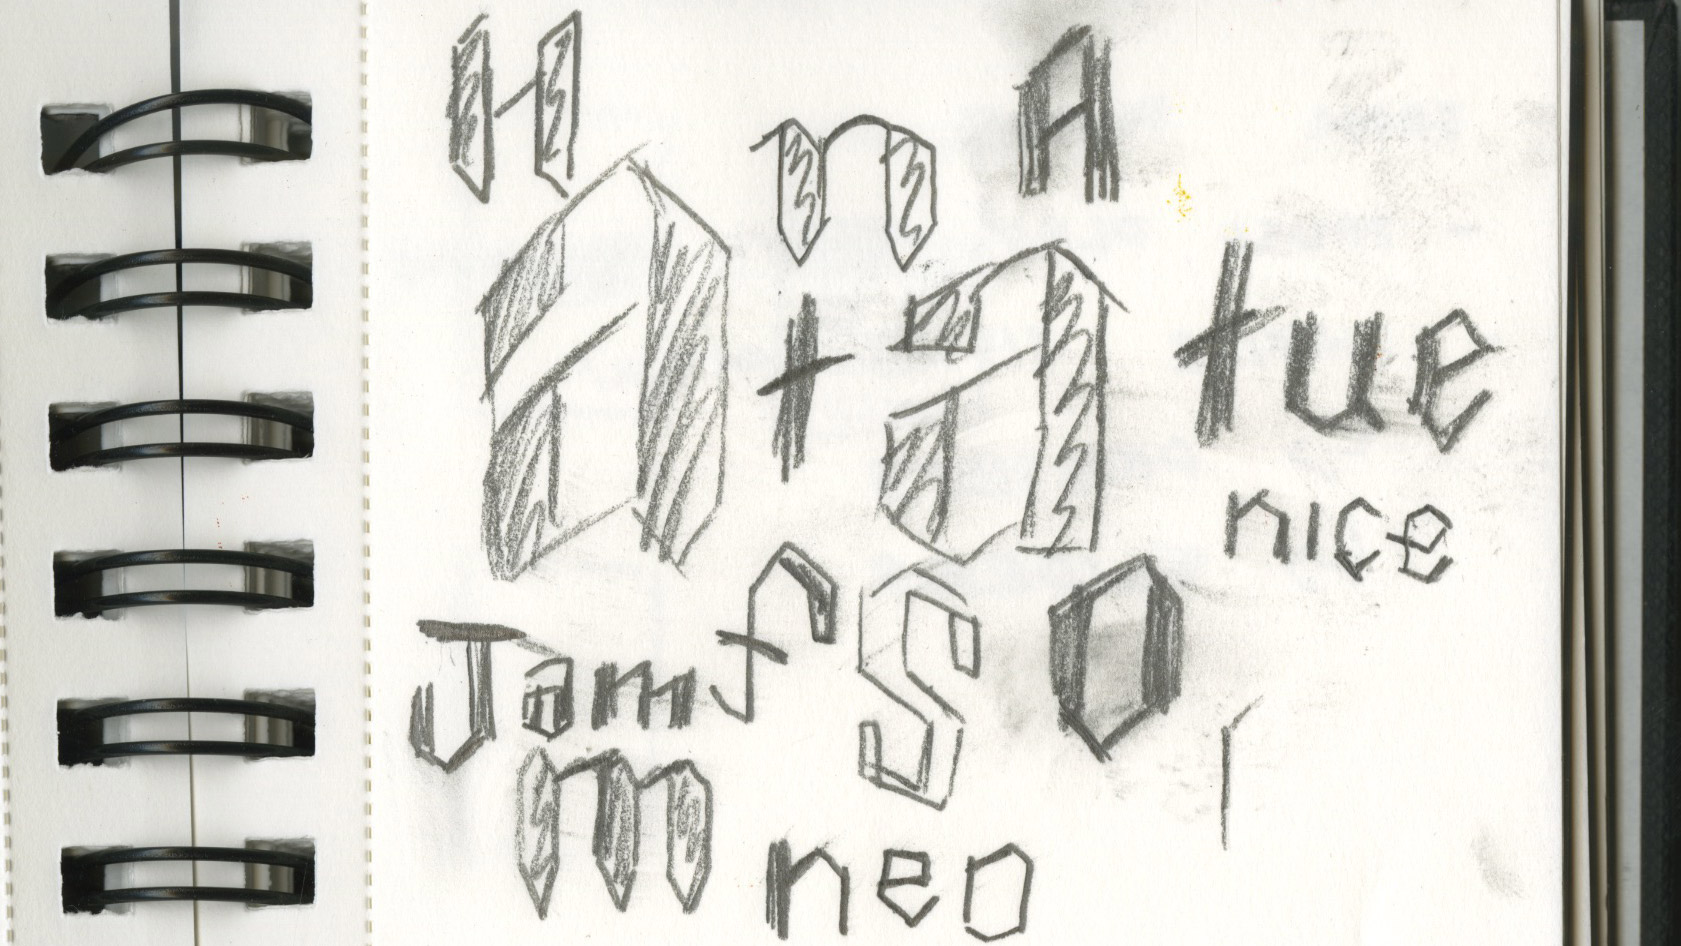 H n A
a t a tue
nice
Jam f S O
m neo